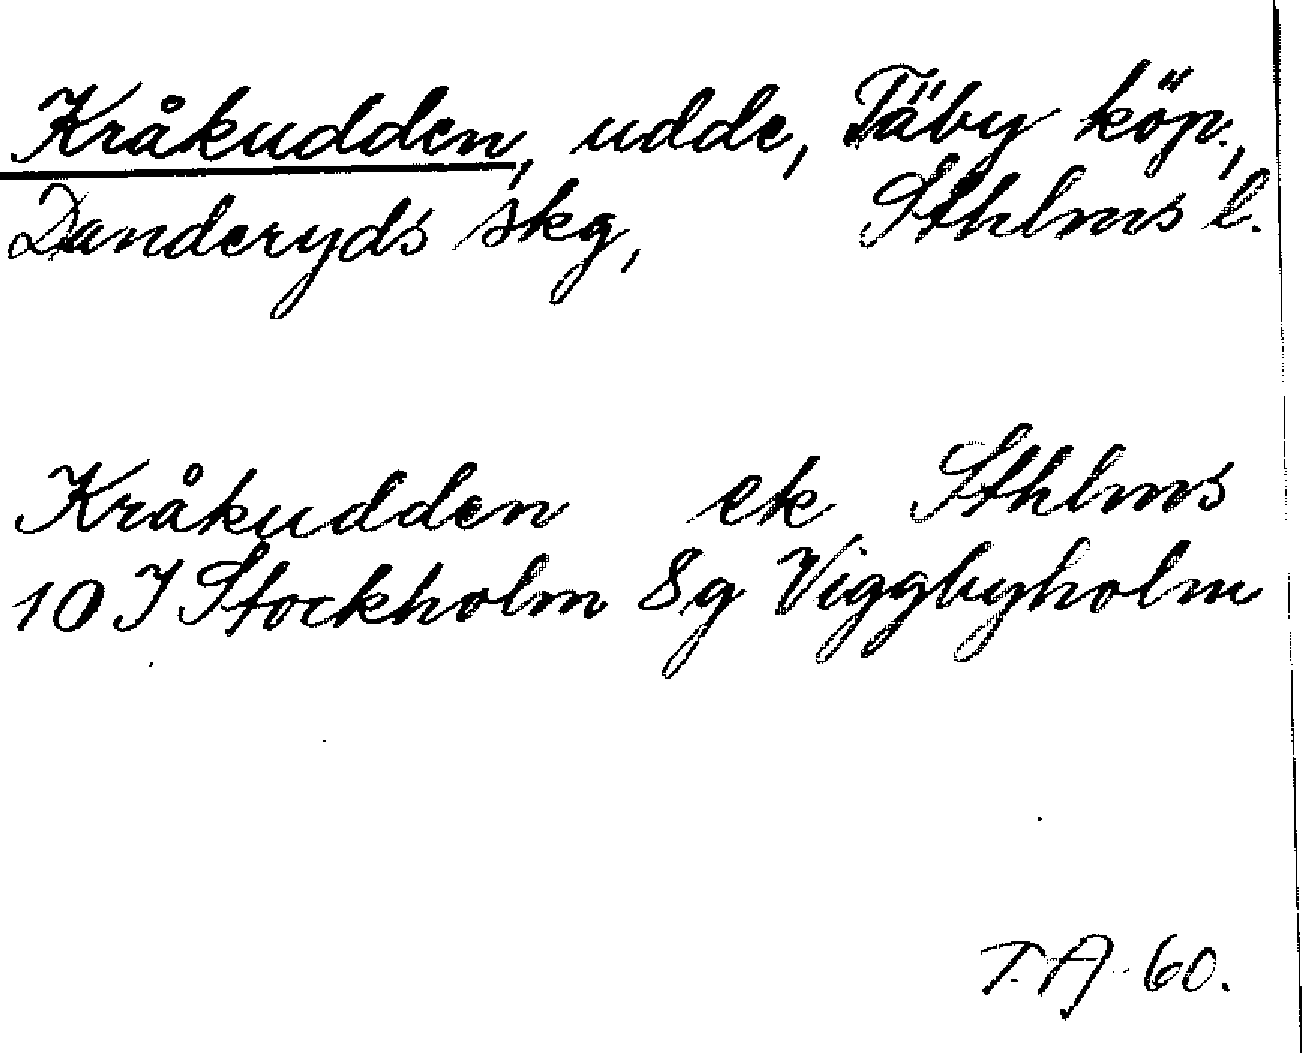 Kråkudden, udde, Täby köp.,
Danderyds skg, Sthlms l.
Kråkudden ek Sthlms
10 I Stockholm 8g Viggbyholm
T.A. 60.